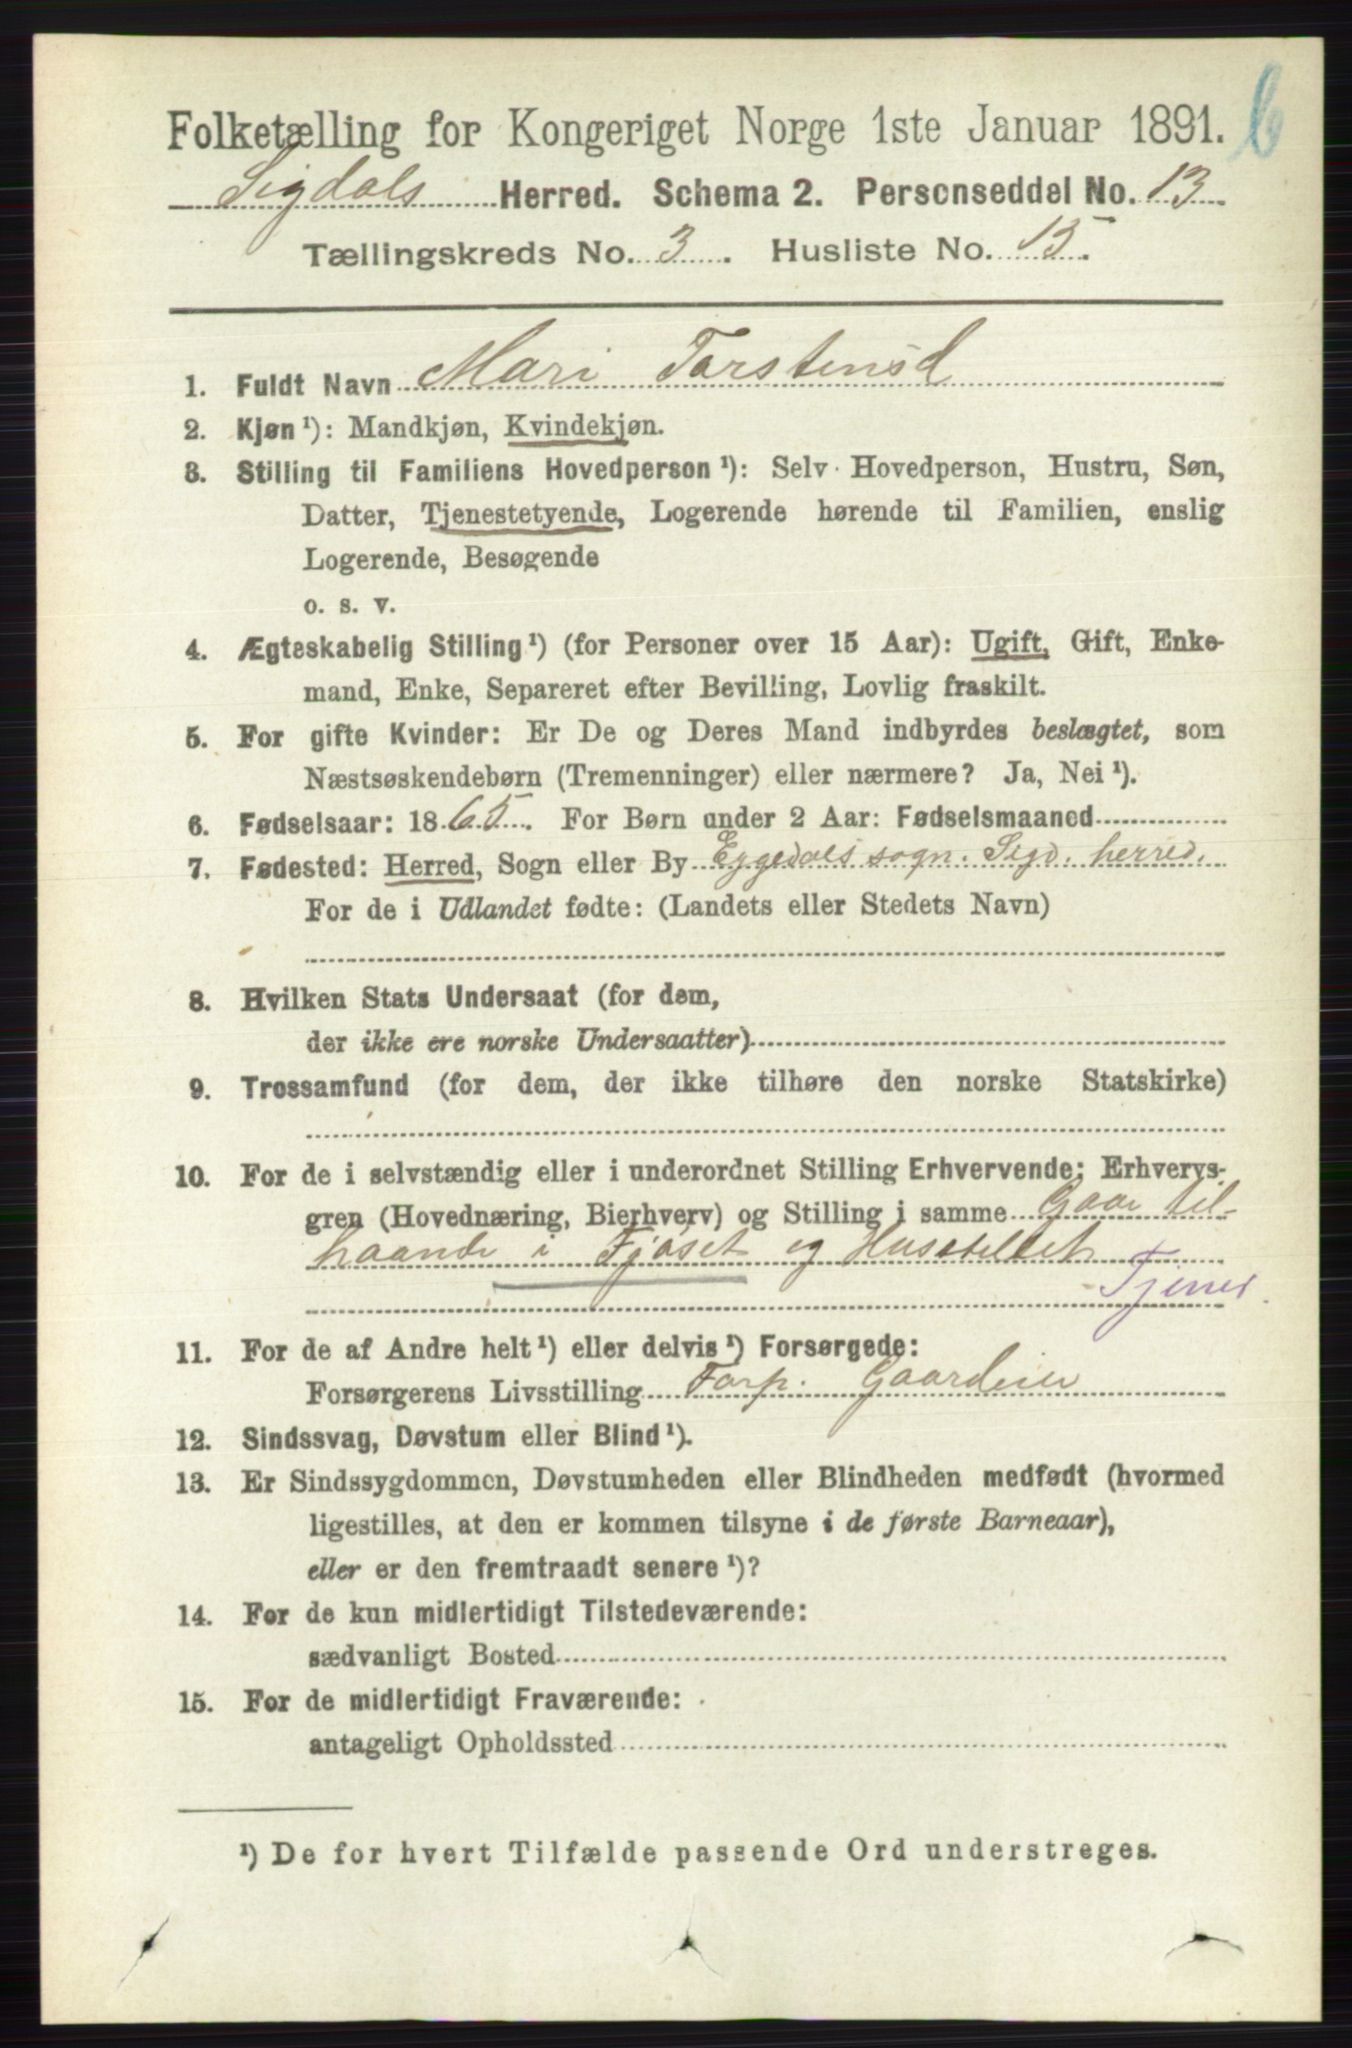 Folketælling for Kongeriget Norge 1ste Januar 1891. 6
Sigdals Herred. Schema 2. Personseddel No. 13
Tællingskreds No. 3. Husliste No. 15.
1. Fuldt Navn Mari Torstensd
2. Kjøn ¹): Mandkjøn, Kvindekjøn.
3. Stilling til Familiens Hovedperson ¹): Selv Hovedperson, Hustru, Søn,
Datter, Tjenestetyende, Logerende hørende til Familien, enslig
Logerende, Besøgende
o. s. v.
4. Ægteskabelig Stilling ¹) (for Personer over 15 Aar): Ugift, Gift, Enke-
mand, Enke, Separeret efter Bevilling, Lovlig fraskilt.
5. For gifte Kvinder: Er De og Deres Mand indbyrdes beslægtet, som
Næstsøskendebørn (Tremenninger) eller nærmere? Ja, Nei ¹).
6. Fødselsaar: 1865. For Børn under 2 Aar: Fødselsmaaned
7. Fødested: Herred, Sogn eller By Eggedals sogn. Sigd. herred.
For de i Udlandet fødte: (Landets eller Stedets Navn)
8. Hvilken Stats Undersaat (for dem,
der ikke ere norske Undersaatter)
9. Trossamfund (for dem, der ikke tilhøre den norske Statskirke)
10. For de i selvstændig eller i underordnet Stilling Erhvervende: Erhvervs-
gren (Hovednæring, Bierhverv) og Stilling i samme Gaar til-
haande i Fjøset og Husstellet
Tjener.
11. For de af Andre helt ¹) eller delvis ¹) Forsørgede:
Forsørgerens Livsstilling Forp. Gaardeier
12. Sindssvag, Døvstum eller Blind ¹).
13. Er Sindssygdommen, Døvstumheden eller Blindheden medfødt (hvormed
ligestilles, at den er kommen tilsyne i de første Barneaar),
eller er den fremtraadt senere ¹)?
14. For de kun midlertidigt Tilstedeværende:
sædvanligt Bosted
15. For de midlertidigt Fraværende:
antageligt Opholdssted
¹) De for hvert Tilfælde passende Ord understreges.